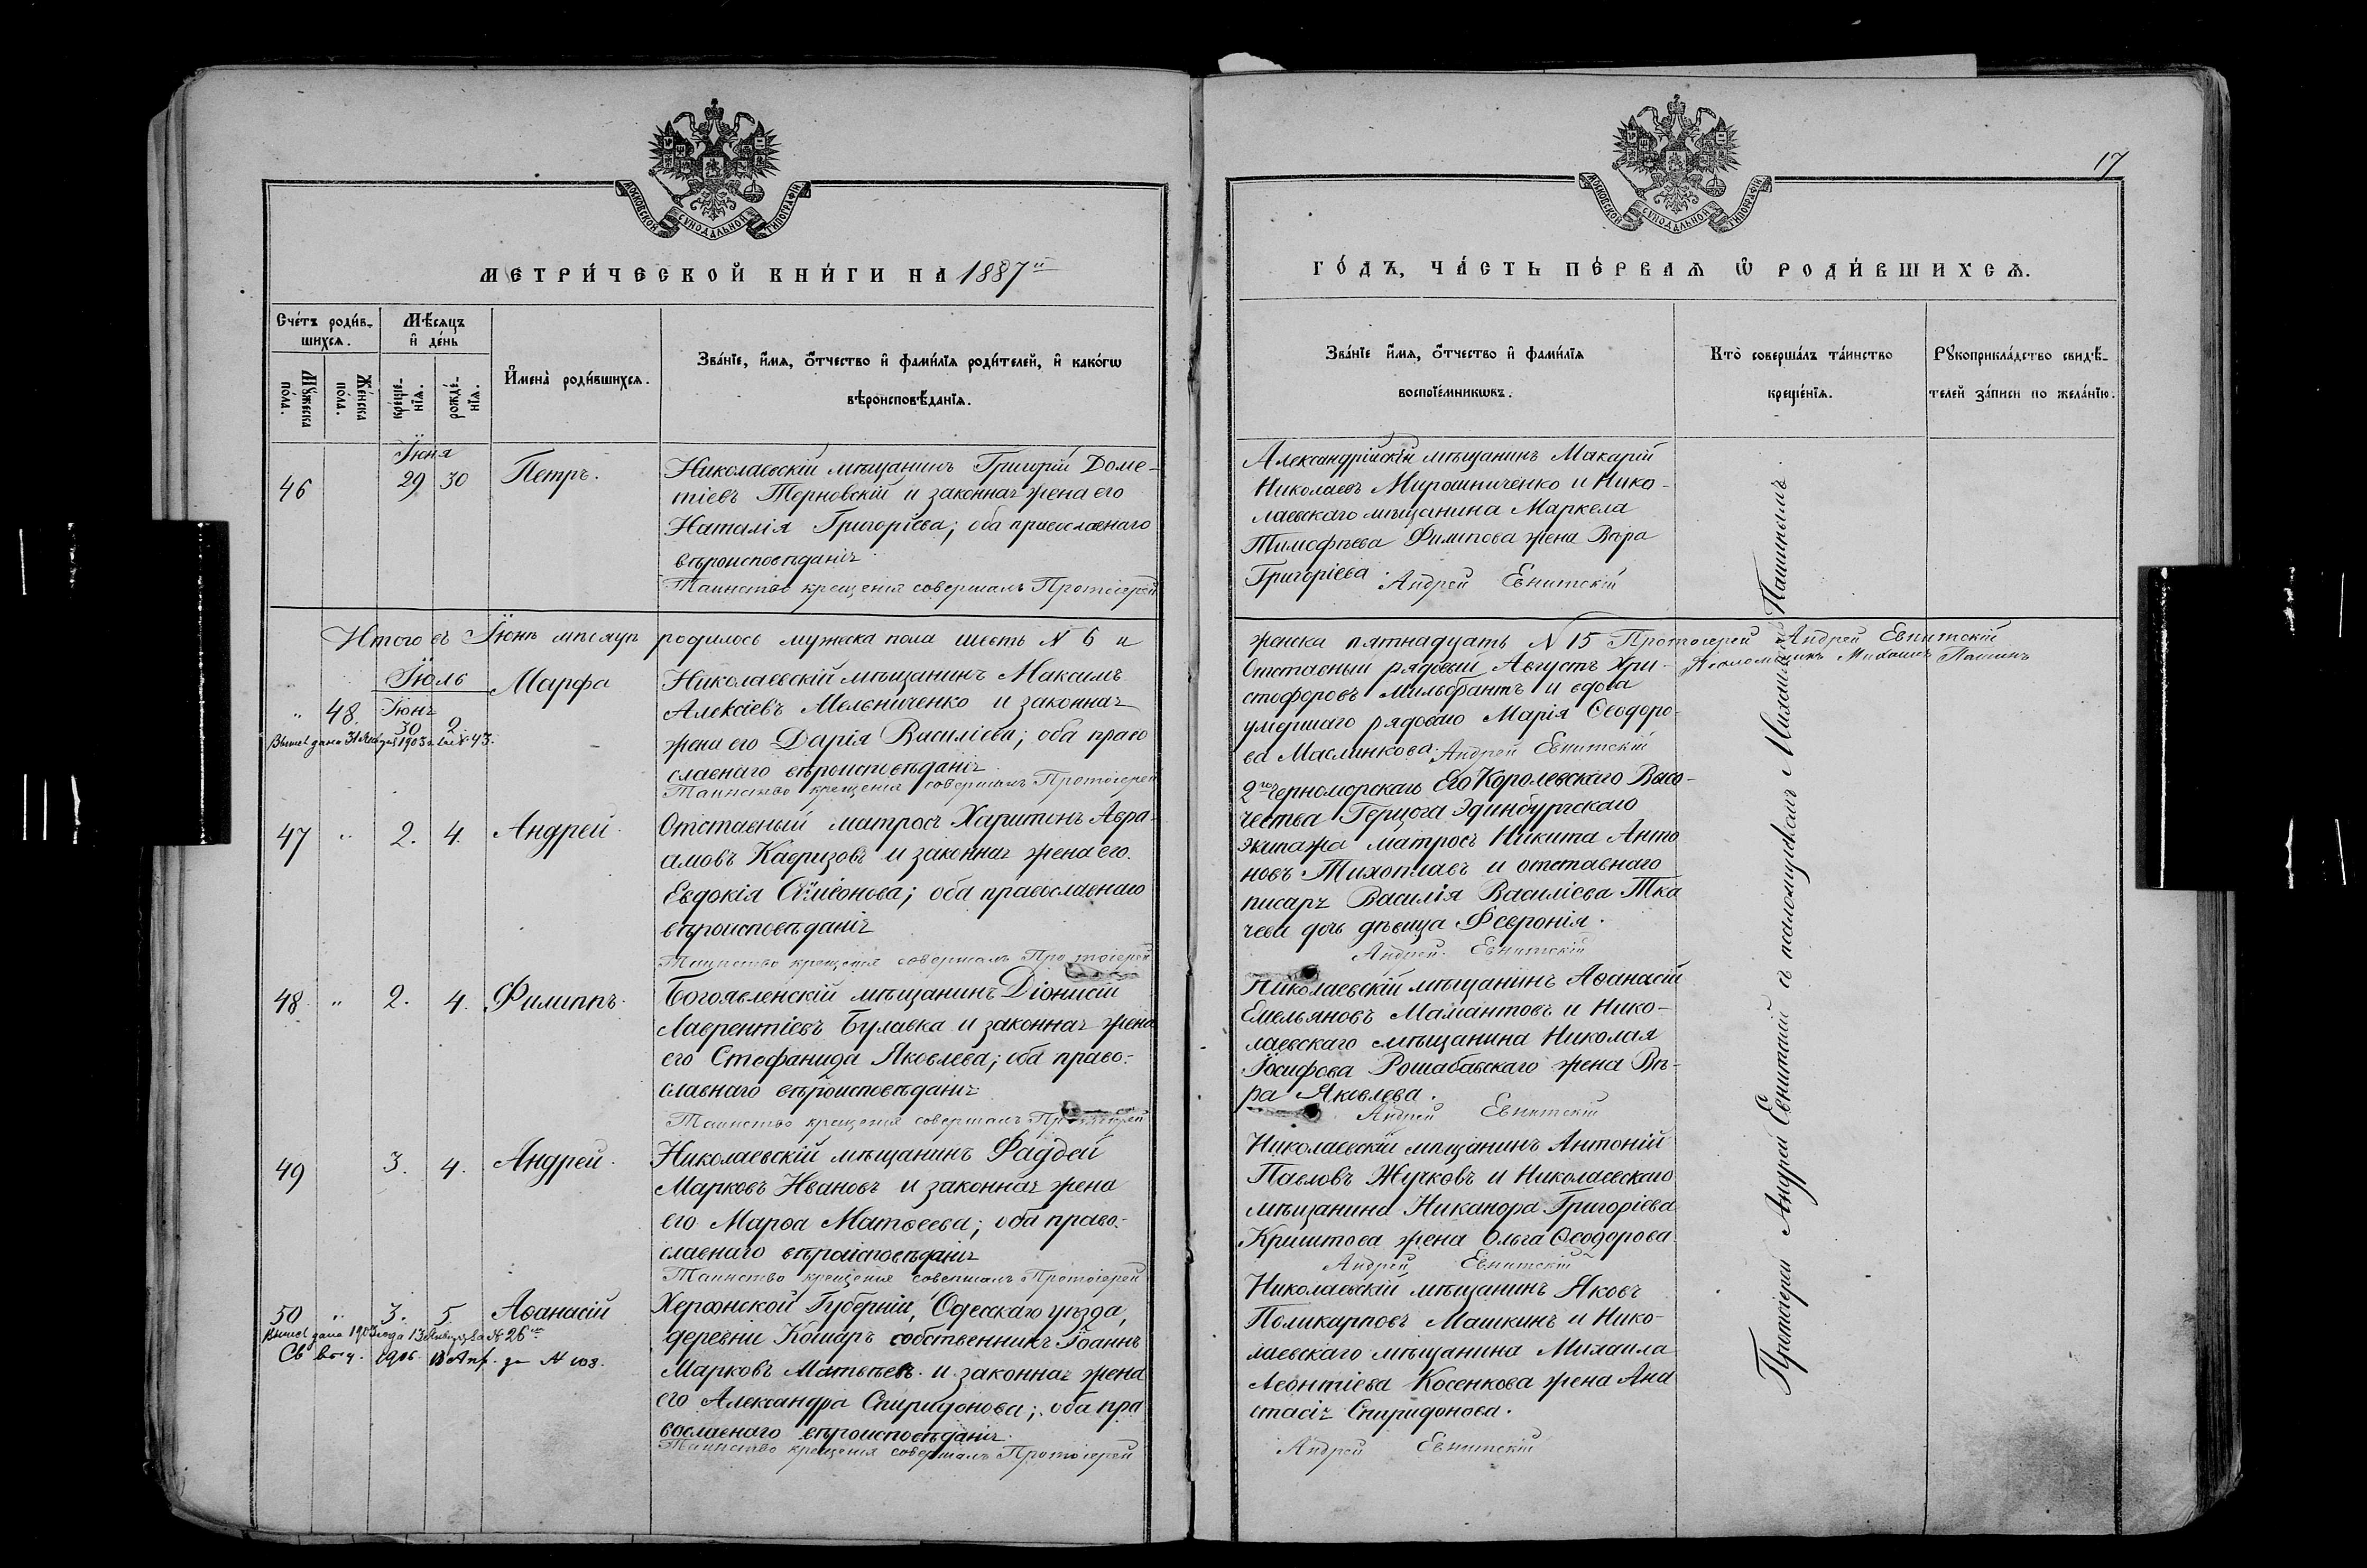 МОСКОВСКОЙ СѴНОДАЛЬНОЙ ТИПОГРАФІИ
МЕТРИ́ЧЕСКОЙ КНИ́ГИ НА 1887й
Сче́тъ роди́в-
шихсѧ.
Мѣ́сяцъ
и҆ де́нь
Мꙋ́жеска
пола.
Же́нска
пола.
креще́-
нїѧ.
рожде́-
нїѧ.
И҆мена̀ роди́вшихсѧ.
Зва́нїе, и҆́мѧ, ѻ҆́тчество и҆ фами́лїѧ роди́телей, и҆ како́гѡ
вѣроисповѣ́данїѧ.
Іюня
46
29 30
Петръ.
Николаевскій мѣщанинъ Григорій Доме-
тіевъ Терновскій и законная жена его
Наталія Григоріева; оба православнаго
вѣроисповѣданія
Таинство крещенія совершалъ Протоіерей
Итого въ Іюнѣ мѣсяцѣ родилось мужеска пола шесть № 6 и
Іюль
" 48.
Іюня
30 2
Марфа
Николаевскій мѣщанинъ Максимъ
Алексіевъ Мельниченко и законная
жена его Дарія Василіева; оба право
славнаго вѣроисповѣданія
Таинство крещенія совершалъ Протоіерей
47 " 2. 4. Андрей.
Отставный матросъ Харитонъ Авра-
амовъ Кавризовъ и законная жена его
Евдокія Сѵмеонова; оба православнаго
вѣроисповѣданія
Таинство крещенія совершалъ Протоіерей
48 " 2. 4. Филиппъ.
Богоявленскій мѣщанинъ Діонисій
Лаврентіевъ Булавка и законная жена
его Стефанида Яковлева; оба право-
славнаго вѣроисповѣданія
Таинство крещенія совершалъ Протоіерей
49 3. 4. Андрей.
Николаевскій мѣщанинъ Фаддей
Марковъ Ивановъ и законная жена
его Марѳа Матѳеева; оба право-
славнаго вѣроисповѣданія
Таинство крещенія совершалъ Протоіерей
50 " 3. 5. Аѳанасій
Выпись дана 1903 года 13 Января за № 26
1906. 13 Апр. за №
Херсонской Губерніи, Одесскаго уѣзда,
деревни Кошаръ собственникъ Іоаннъ
Марковъ Матвѣевъ и законная жена
его Александра Спиридонова; оба пра
вославнаго вѣроисповѣданія.
Таинство крещенія совершалъ Протоіерей
17
МОСКОВСКОЙ СѴНОДАЛЬНОЙ ТИПОГРАФІИ
ГО́ДЪ, ЧА́СТЬ ПЕ́РВАѦ Ѿ РОДИ́ВШИХСѦ.
Зва́нїе и҆́мѧ, ѻ҆́тчество и҆ фами́лїѧ
воспрїе́мникѡвъ.
Кто̀ соверша́лъ та́инство
креще́нїѧ.
Рꙋкоприкла́дство свидѣ́-
телей за́писи по жела́нїю.
Александрійскій мѣщанинъ Макарій
Николаевъ Мирошниченко и Нико-
лаевскаго мѣщанина Маркела
Тимофѣева Филипова жена Вѣра
Григоріева. Андрей Евнитскій
женска пятнадцать № 15 Протоіерей Андрей Евнитскій
Псаломщикъ Михаилъ Пашинъ
Отставный рядовый Августъ Хри-
стофоровъ Мильбрантъ и вдова
умершаго рядоваго Марія Ѳеодоро-
ва Маслинкова. Андрей Евнитскій
2го Черноморскаго Его Королевскаго Высо-
чества Герцога Эдинбургскаго
экипажа матросъ Никита Анто
новъ Тихоплавъ и отставнаго
писаря Василія Василіева Тка
чева дочь дѣвица Февронія.
Андрей Евнитскій
Николаевскій мѣщанинъ Аѳанасій
Емельяновъ Мамантовъ и Нико-
лаевскаго мѣщанина Николая
Іосифова Рошабавскаго жена Вѣ-
ра Яковлева.
Андрей Евнитскій
Николаевскій мѣщанинъ Антоній
Павловъ Жучковъ и Николаевскаго
мѣщанина Никанора Григоріева
Криштова жена Ольга Ѳеодорова
Андрей Евнитскій
Николаевскій мѣщанинъ Яковъ
Поликарповъ Машкинъ и Нико-
лаевскаго мѣщанина Михаила
Леонтіева Косенкова жена Ана
стасія Спиридонова.
Андрей Евнитскій
Протоіерей Андрей Евнитскій съ псаломщикомъ Михаиломъ Пашинымъ